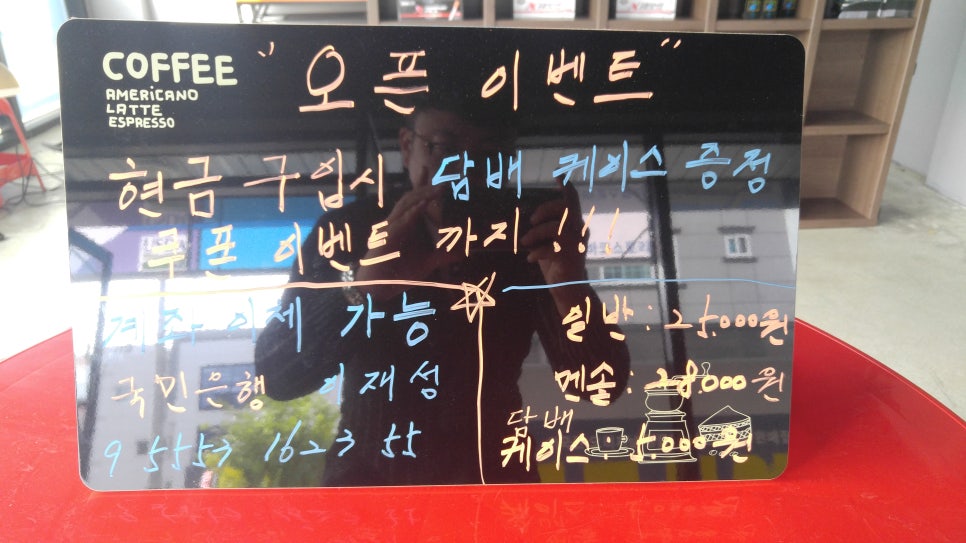 COFFEE
AMERICANO
LATTE
ESPRESSO
"오픈 이벤트"
현금 구입시 담배 케이스 증정
쿠폰 이벤트 까지!!!
계좌이체 가능
국민은행 이재성
9 5553 1623 55
일반 : 25,000원
멘솔 : 28,000원
담배
케이스 : 5,000원